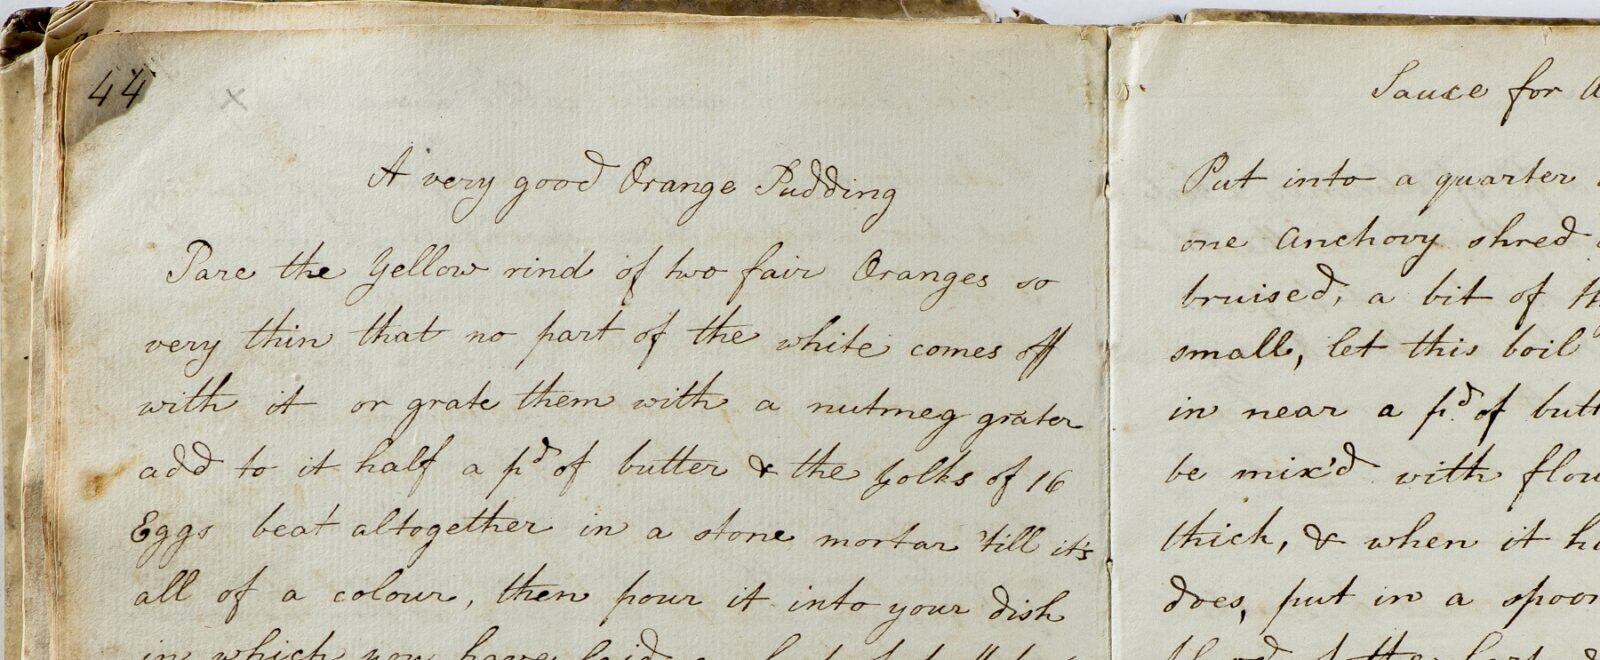 44
A very good Orange Pudding
Pare the Yellow rind of two fair Oranges so
very thin that no part of the white comes off
with it or grate them with a nutmeg grater
add to it half a pd of butter & the yolks of 16
Eggs beat altogether in a stone mortar 'till it's
all of a colour, then pour it into your dish
in which you have laid
Sauce for
Put into a quarter
one Anchovy shred
bruised, a bit of
small, let this boil
in near a pd of
be mix'd with
thick, & when it
does, put in a